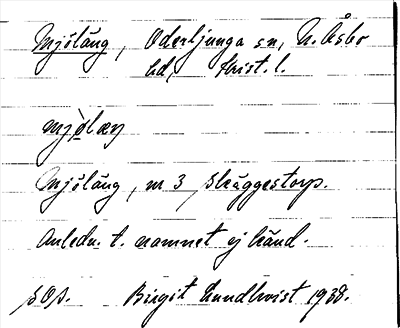 Mjöläng, Oderljunga sn, N. Åsbo
hd, Krist. l.
mjø̀læŋ
Mjöläng, nr 3 Skäggestorp.
Anledn. t. namnet ej känd.
sOs. Birgit Lundkvist 1938.